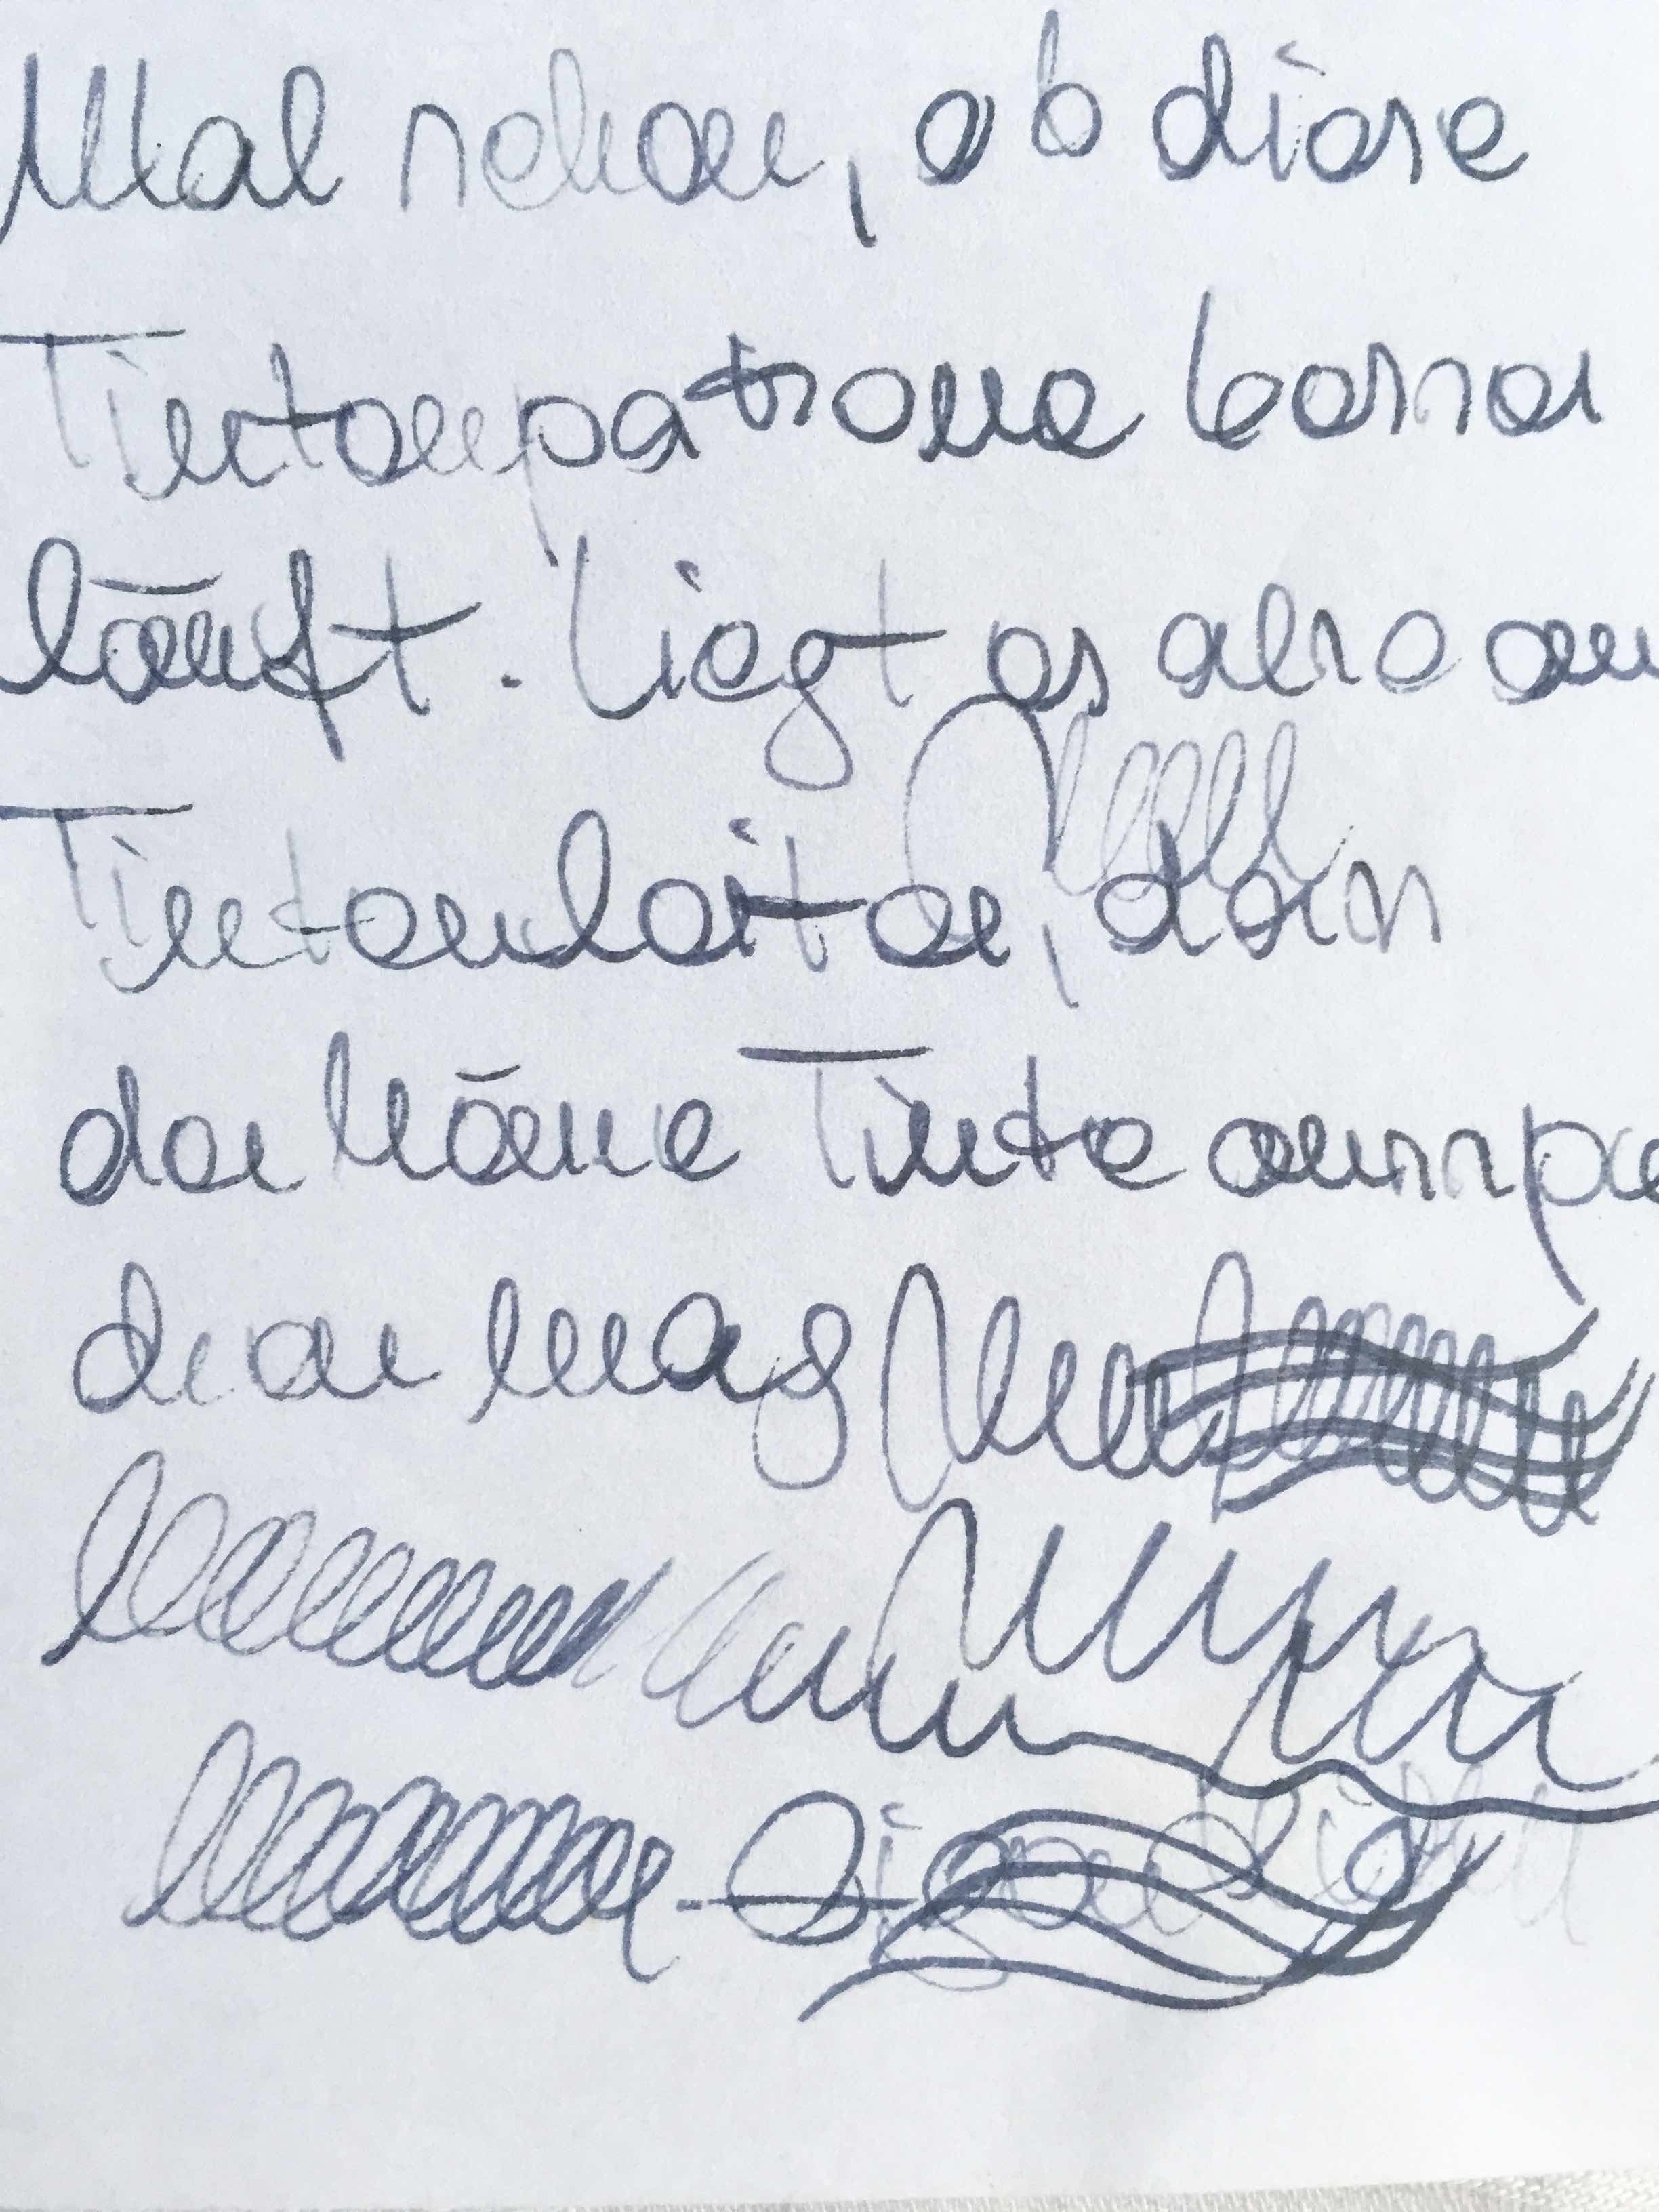 Mal sehen, ob diese
Tintenpatrone besser
läuft. Liegt es also am
Tintenleiter, dass
der keine Tinte
mag